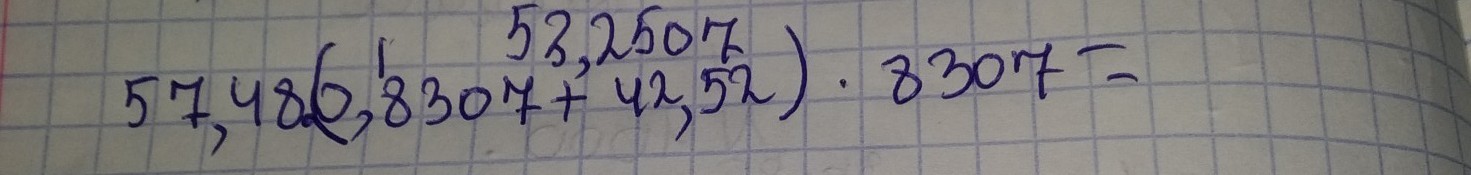 1 53,2507
57,48(0,8307+42,52)·8307=